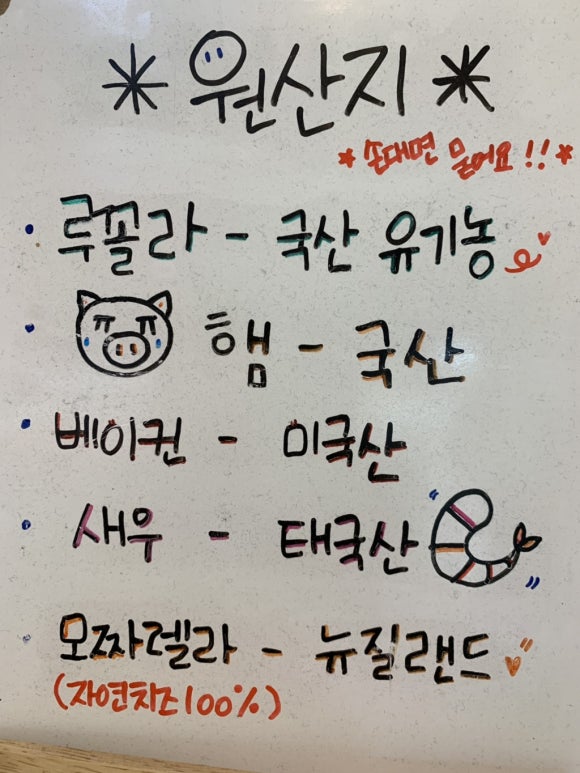 * 원산지 *
* 손대면 물어요!! *
• 루꼴라 - 국산 유기농
• 햄 - 국산
• 베이컨 - 미국산
• 새우 - 태국산
• 모짜렐라 - 뉴질랜드
(자연치즈100%)